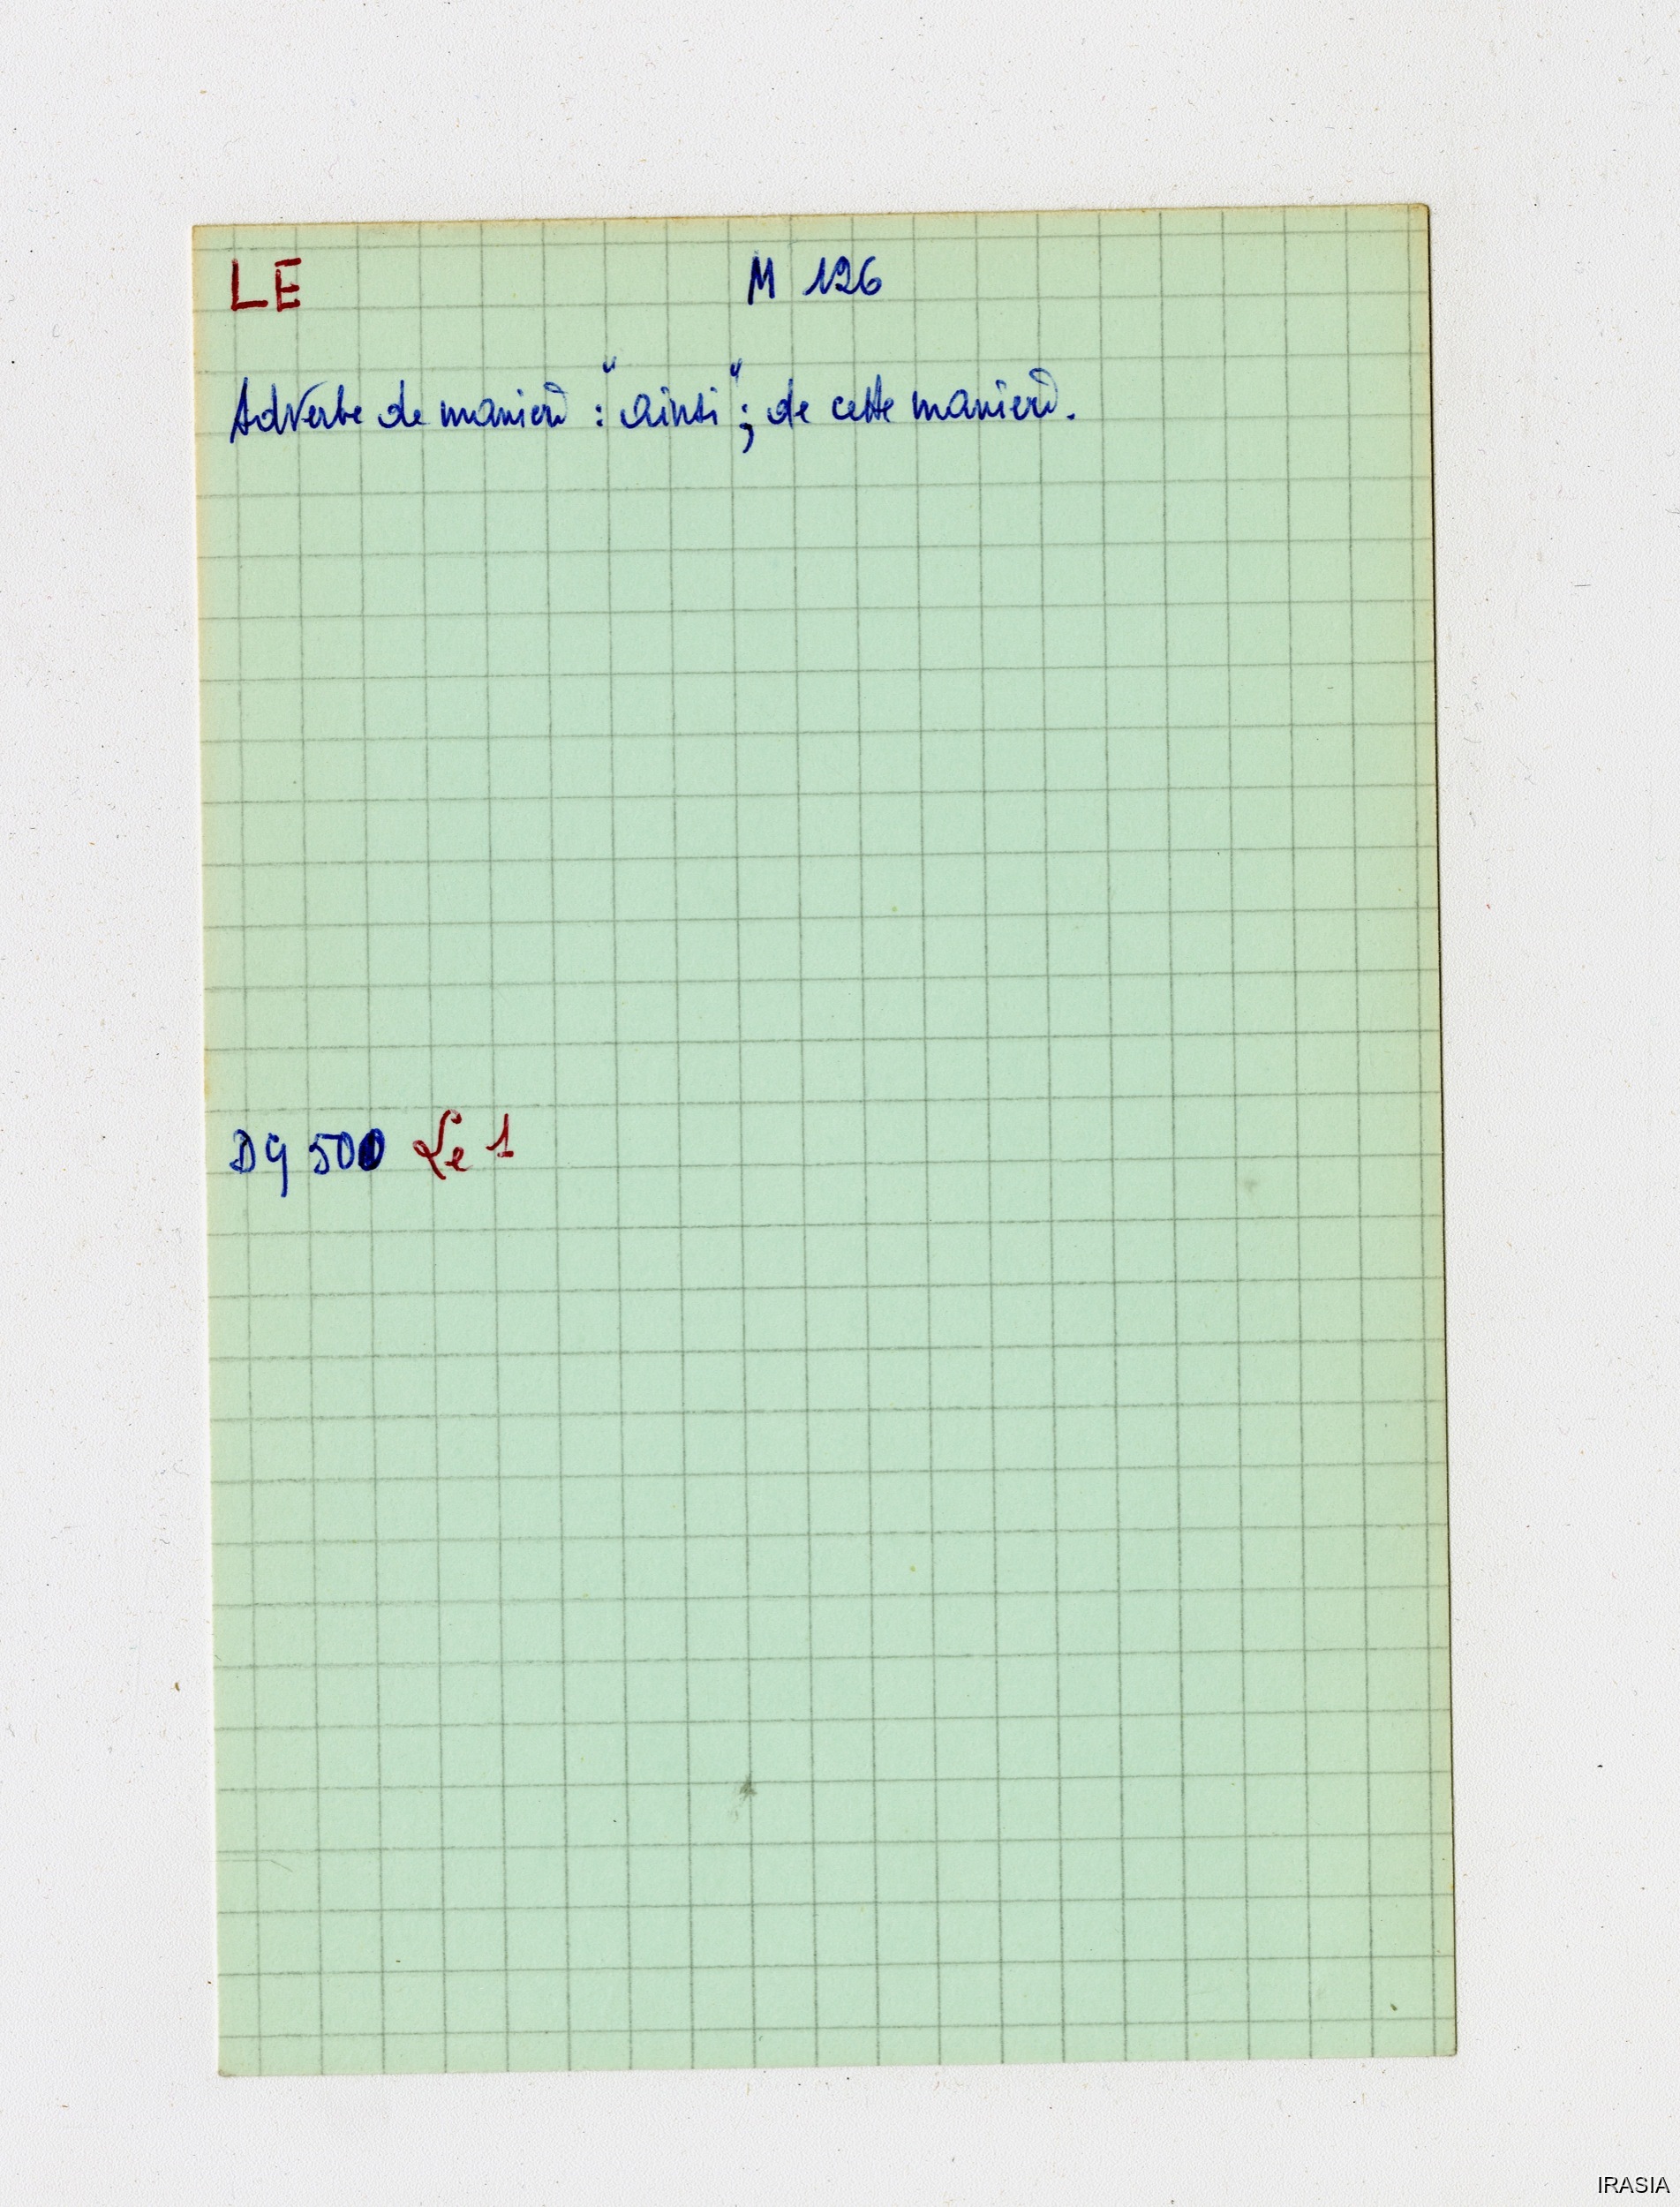 LE M 126
Adverbe de manière : "ainsi" ; de cette manière.
DG 500 Le 1
IRASIA